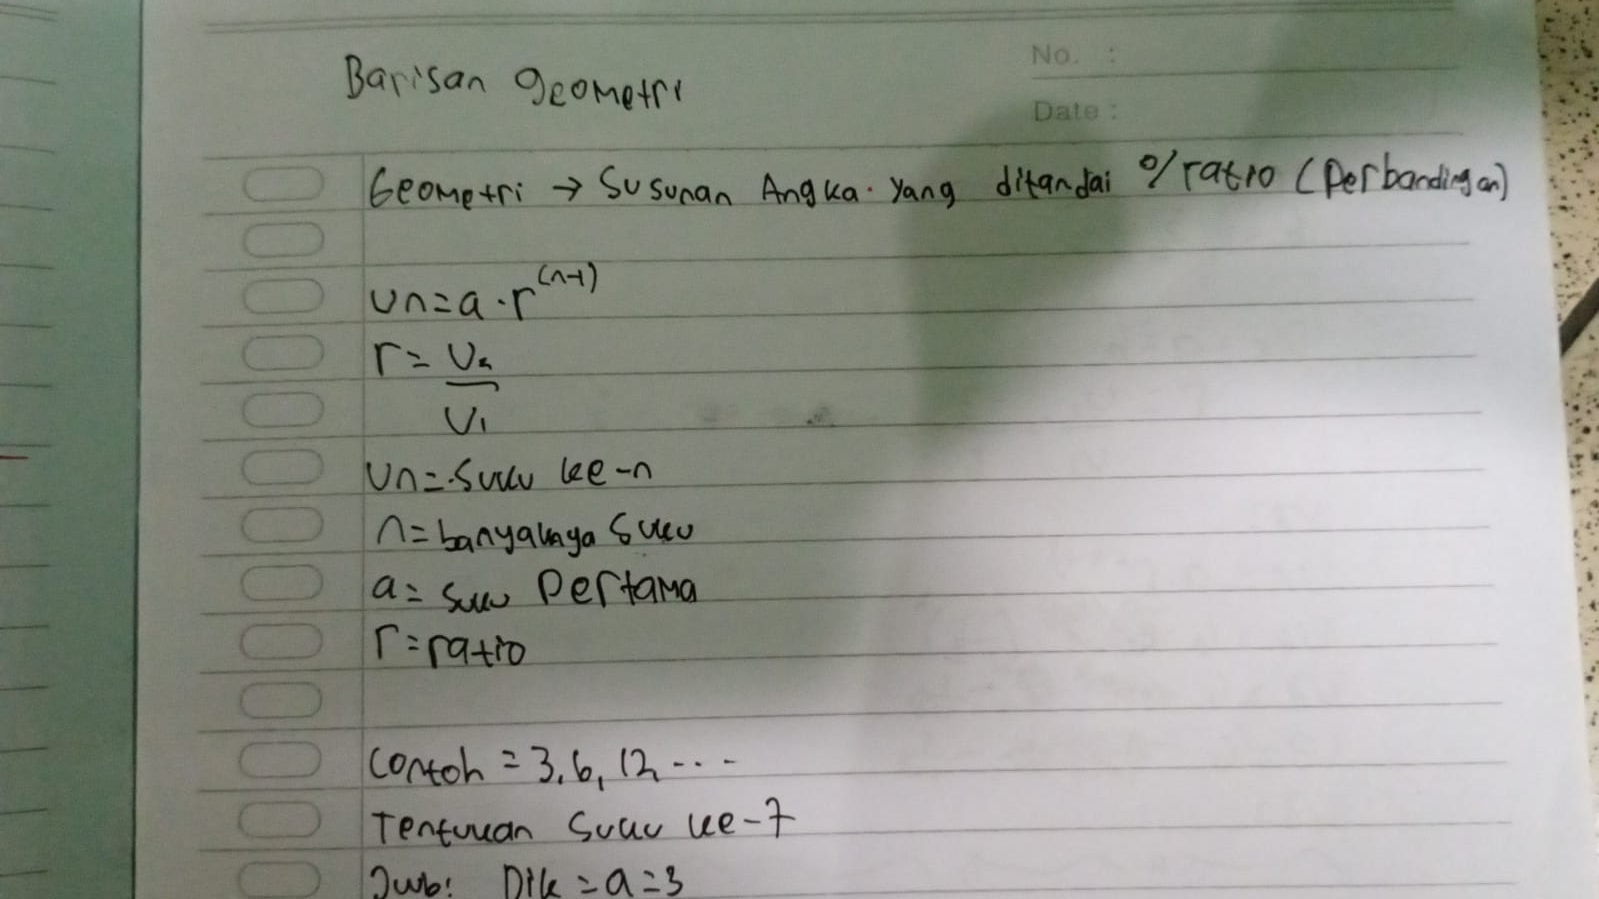 Barisan geometri
No. :
Date :
Geometri → Susunan Angka yang ditandai o/ ratio (Perbandingan)
Un = a · r^(n-1)
r = U₂
U₁
Un = Suku ke-n
n = banyaknya Suku
a = Suku Pertama
r = ratio
Contoh = 3, 6, 12, ...
Tentukan Suku ke-7
Jwb: Dik = a = 3